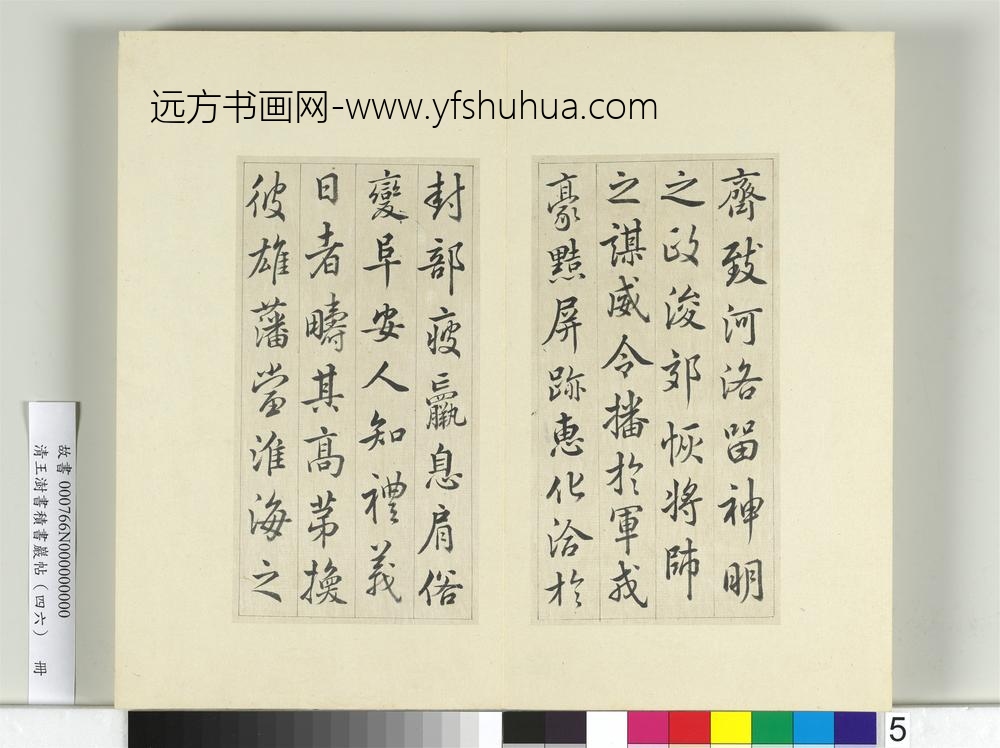 远方书画网-www.yfshuhua.com
齊致河洛留神明
之政浚郊恢將帥
之謀威令播於軍戎
豪黠屏跡惠化洽於
封部疲羸息肩俗
變阜安人知禮義
日者疇其高第換
彼雄藩當淮海之
故書 000766N000000000
清王澍書積書巖帖(四六) 冊
5